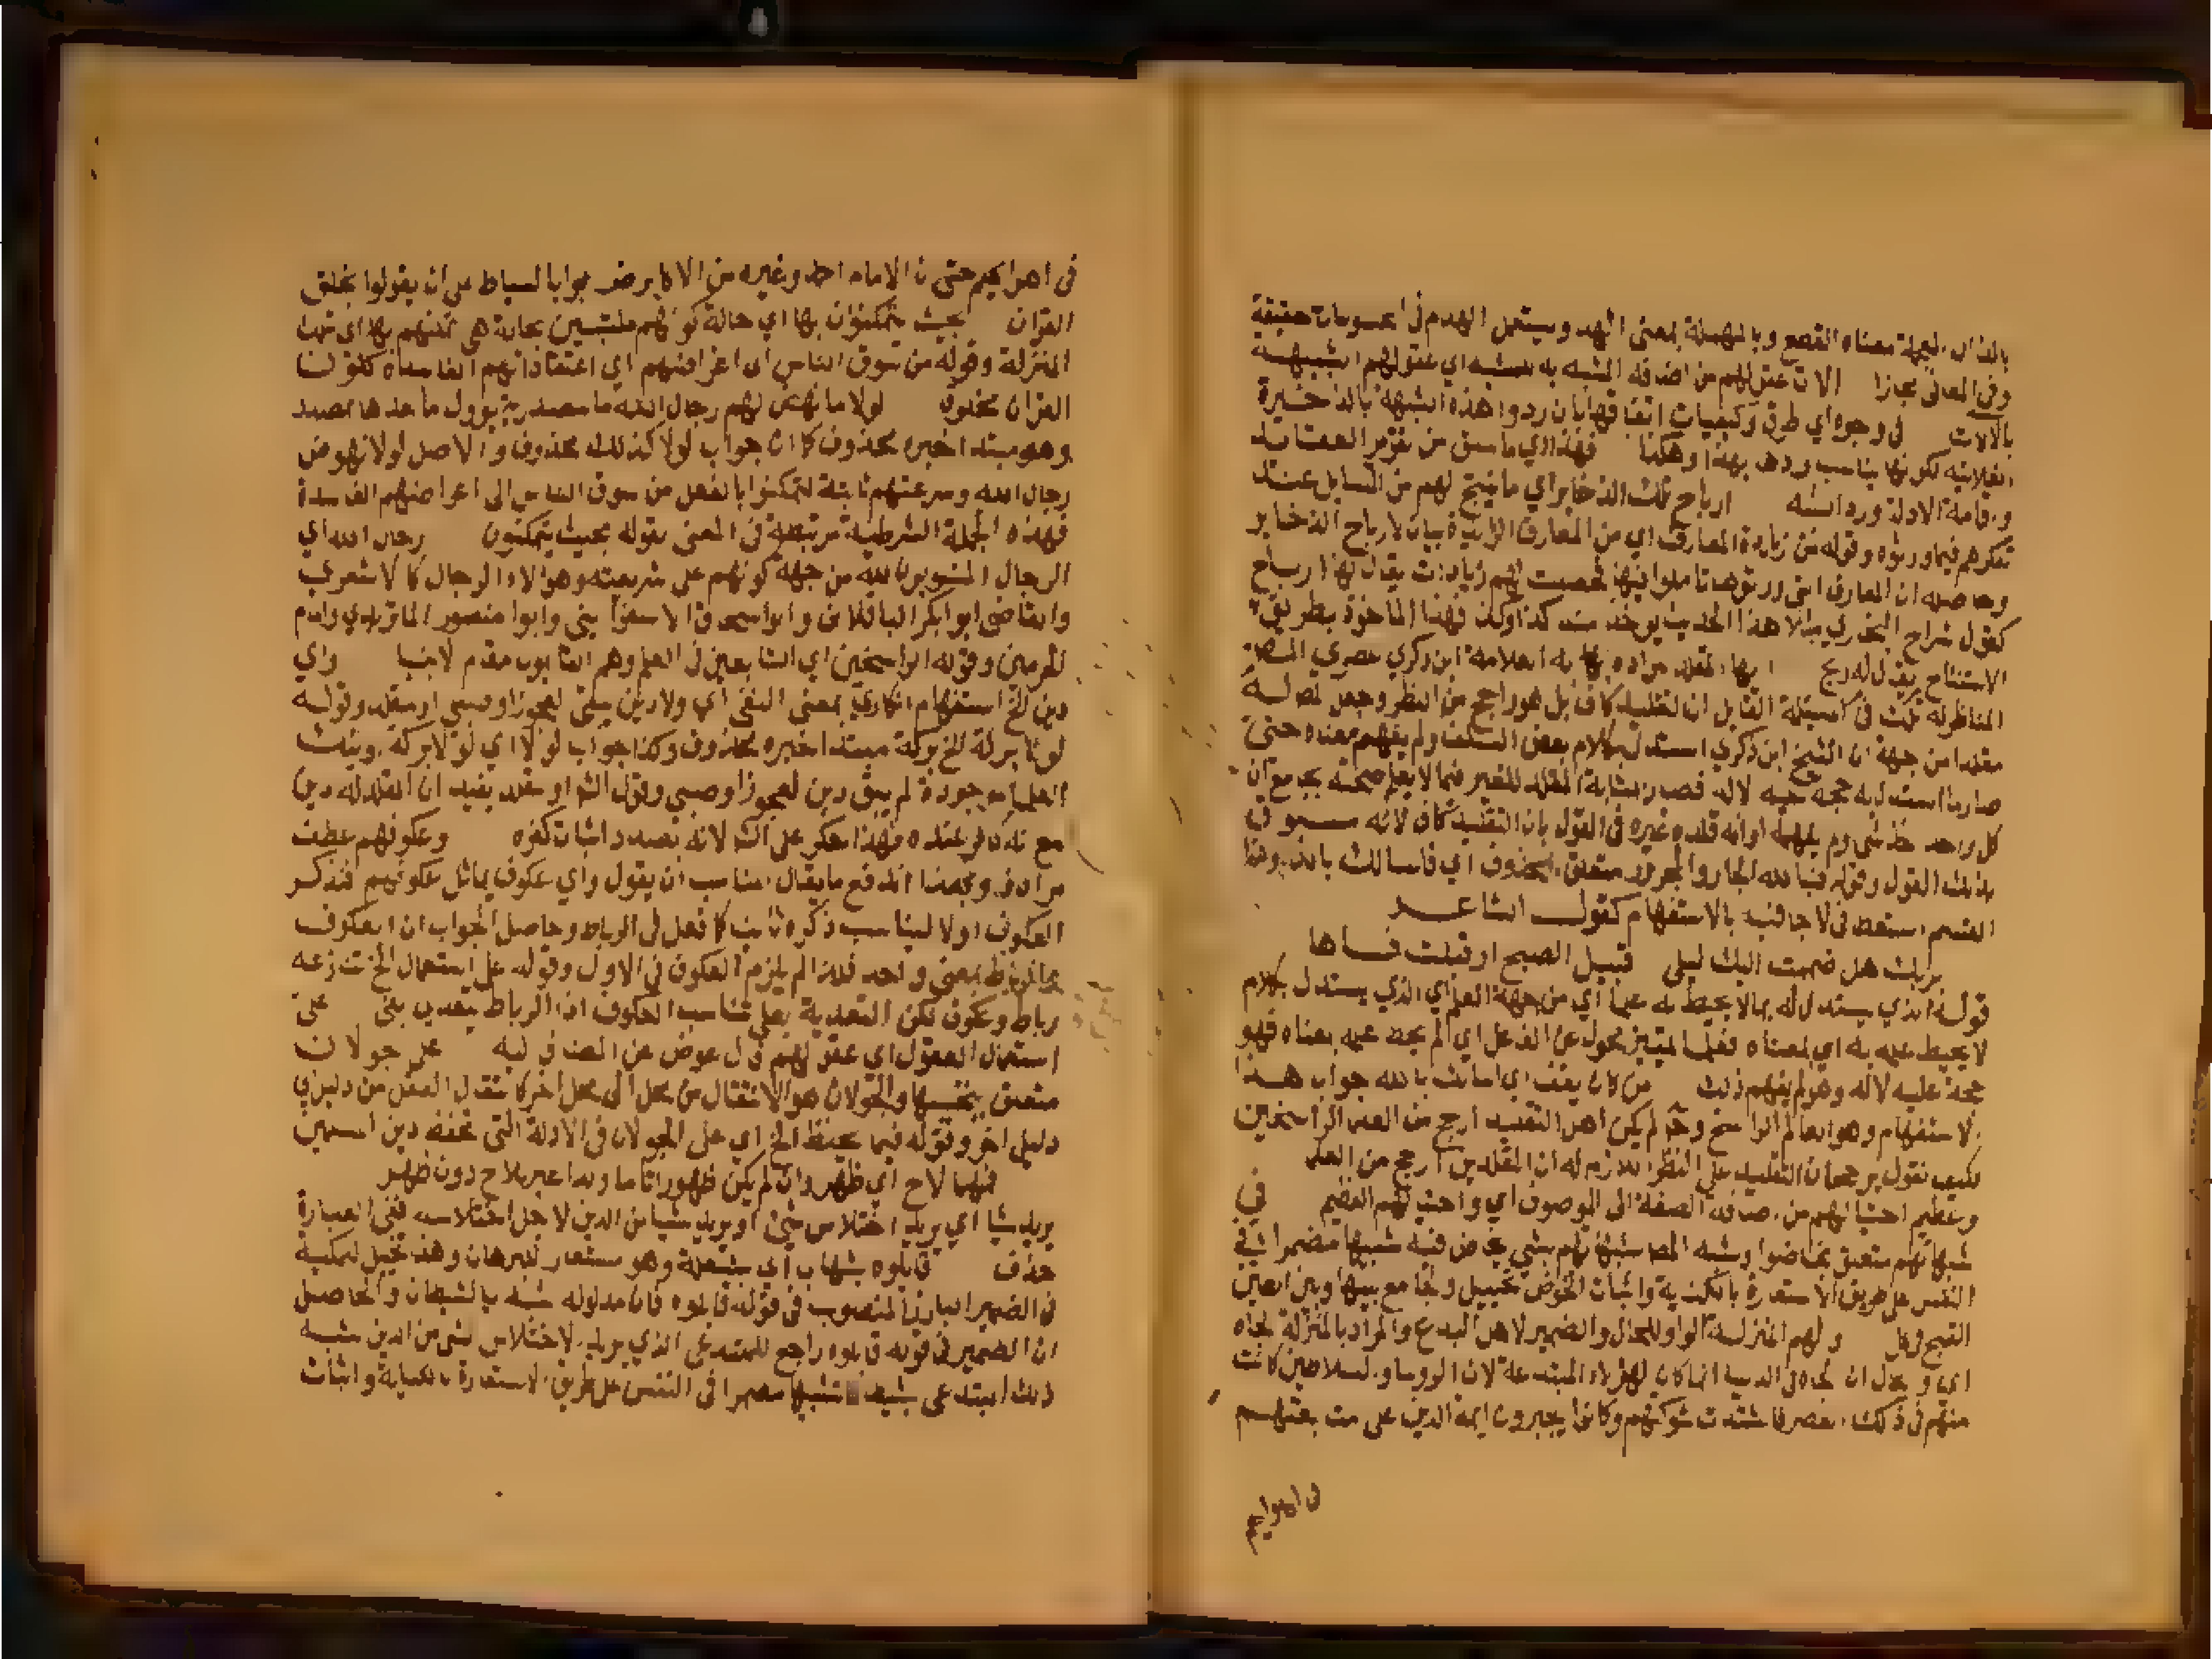 بالذال المعجمة معناه القطع وبالمهملة بمعنى الهد ويستعمل الهدم في المحسوسات حقيقة
وفي المعاني مجازا الات عقولهم من اضافة المشبه به للمشبه اي عقولهم الشبيهة
بالالات في وجوه اي طرق وكيفيات اتفاقها بان ردوا هذه الشبهة بالذخيرة
الفلانية لكونها يناسب ردها بهذا وهكذا فهذا اي ما سبق من تقرير العقائد
واقامة الادلة ورد الشبه ارباح تلك الذخاير اي ما ينتج لهم من المسايل عند
تفكرهم فيما وردوه وقوله من زيادة المعارف اي من المعارف الزايدة بيان لارباح الذخاير
وحاصله ان المعارف التي وردوها تاملوا فيها فحصلت لهم زيادات يقال لها ارباح
كقول شراح البخاري مثلا هذا الحديث يوخذ منه كذا وكذا فهذا الماخوذ بطريق
الاستنتاج يقال له ربح ايها المقلد مراده به العلامة ابن ذكري عصري المص
المناظر له تلك في المسئلة القايل ان التقليد كاف بل هو راجح من النظر وجعل المص له
مقلدا من جهة ان الشيخ ابن ذكري استدل بكلام بعض السلف ولم يفهم معناه حتى
صار ما استدل به حجة عليه لا له فصدر مشابه المقلد للغير فيما لا يعلم صحته بجامع ان
كل واحد بلا فهم او انه قلد غيره في القول بان التقليد كاف لانه مسبوق
بذلك القول وقوله فبالله الجار والمجرور متعلق بمحذوف اي فاسالك بالله وهذا
القسم استعطافي لاجابته بالاستفهام كقول الشاعر
بربك هل ضممت اليك ليلى قبيل الصبح او قبلت فاها
قوله الذي يستدل له بما لا يحيط به علما اي من جهة العلم اي الذي يستدل بكلام
لا يحيط علمه به اي بمعناه فعلما تمييز محول عن الفاعل اي لم يحط علمه بمعناه فهو
حجة عليه لا له وهو لم يفهم ذلك من كان يقف اي اسالك بالله جواب هذا
الاستفهام وهو العالم الراسخ وح لم يكن اهل التقليد ارجح من العلماء الراسخين
فكيف تقول برجحان التقليد على النظر اللازم له ان المقلدين ارجح من العلماء
وعظيم احتيالهم من اضافة الصفة الى الموصوف اي واحتيالهم العظيم في
شبهاتهم متعلق بخاضوا وشبه المص شبهاتهم بشي يخاض فيه تشبيها مضمرا في
النفس على طريق الاستعارة بالكناية واثبات الخوض تخييل والجامع بينها وبين الطين
القبح في كل ولهم المنزلة الواو للحال والضمير لاهل البدع والمراد بالمنزلة الجاه
اي والحال ان الجاه في الدنيا انما كان لهؤلاء المبتدعة لان الروسا والسلاطين كانت
منهم في ذلك العصر فاشتدت شوكتهم وكانوا يجبرون ايمة الدين على متابعتهم
في اهوايهم
في اهوايهم حتى ان الامام احمد وغيره من الاكابر ضربوا بالسياط على ان يقولوا بخلق
القران بحيث يتمكنون بها اي حالة كونهم ملتبسين بحالة هي تمكنهم بها اي بتلك
المنزلة وقوله من سوق الناس الى اغراضهم اي اعتقاداتهم الفاسدة ككون
القران مخلوق لولا ما نهض لهم رجال الله ما مصدرية يوول ما بعدها بمصدر
وهو مبتدا خبره محذوف كما ان جواب لولا كذلك محذوف والاصل لولا نهوض
رجال الله وسرعتهم ثابتة لتمكنوا بالفعل من سوق الناس الى اغراضهم الفاسدة
فهذه الجملة الشرطية مرتبطة في المعنى بقوله بحيث يتمكنون رجال الله اي
الرجال المنسوبون لله من جهة كونهم على شريعته وهؤلاء الرجال كالاشعري
والقاضي ابو بكر الباقلاني وابو اسحق الاسفرايني وابوا منصور الماتريدي وامام
الحرمين وقوله الراسخين اي الثابتين في العلم وهم القايمون مقام الانبيا واي
دين الخ استفهام انكاري بمعنى النفي اي ولا دين يبقى لعجوز او صبي او مقلد وقوله
لولا بركة الخ بركة مبتدا خبره محذوف وكذا جواب لولا اي لولا بركة اوليك
العلما موجودة لم يبق دين لعجوز او صبي وقول الشم او مقلد يفيد ان المقلد له دين
مع انه كافر عنده فهذا يعكر على الشم لانه بصدد اثبات كفره وعكوفهم عطف
مرادف وبهذا اندفع ما يقال المناسب ان يقول واي عكوف يماثل عكوفهم فذكر
العكوف اولا ليناسب ذكره ثانيا كما فعل في الرباط وحاصل الجواب ان العكوف
والرباط بمعنى واحد فلذا لم يلزم العكوف في الاول وقوله على استعمال الخ تنازعه
رباط وعكوف لكن التعدية بعلى تناسب العكوف اذ الرباط يتعدى بفي على
استعمال العقول اي عقولهم فال عوض عن المضاف اليه على جولان
متعلق بحبسها والجولان هو الانتقال من محل الى محل اخر كانتقال العقل من دليل الى
دليل اخر وقوله فيما يحفظ الخ اي على الجولان في الادلة التي تحفظ دين المسلمين
فمهما لاح اي ظهر وان لم يكن ظهورا تاما ولذا عبر بلاح دون ظهر
يريد شيا اي يريد اختلاس شي او يريد شيا من الدين لاجل اختلاسه ففي العبارة
حذف قابلوه بشهاب اي بشعلة وهو مستعار للبرهان وهذا تخييل للمكنية
في الضمير البارز المنصوب في قوله قابلوه فان مدلوله شبه بالشيطان والحاصل
ان الضمير في قوله قابلوه راجع للمبتدع الذي يريد الاختلاس لشي من الدين شبه
ذلك المبتدع بشيطان تشبيها مضمرا في النفس على طريق الاستعارة بالكناية واثبات